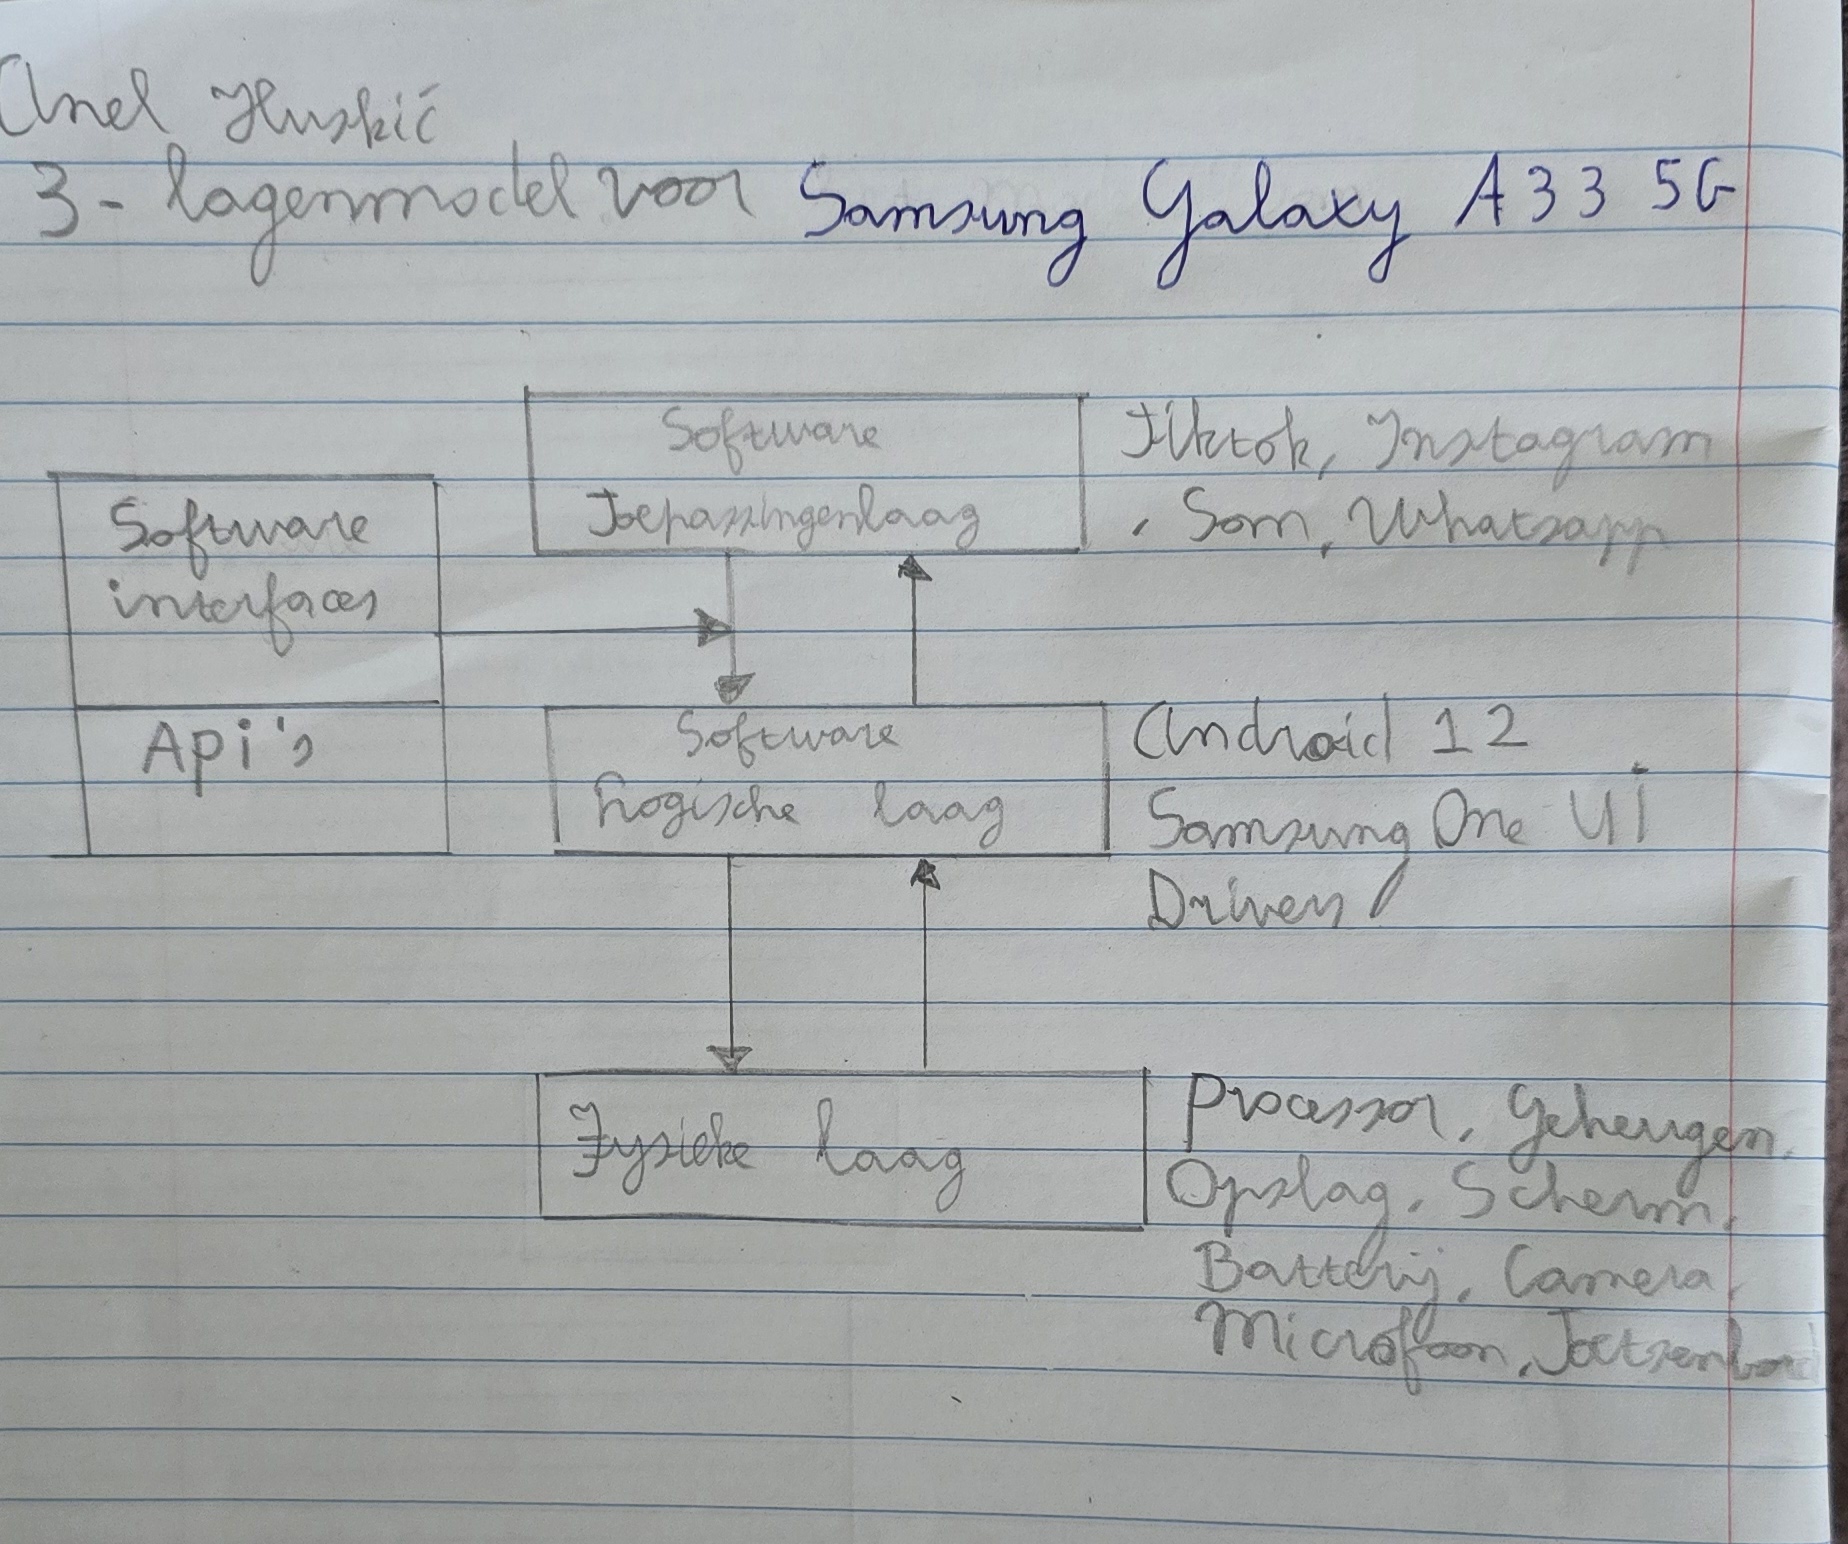 Anel Huskić
3-lagenmodel voor Samsung Galaxy A33 5G
Software
Toepassingenlaag
Tiktok, Instagram
, Som, Whatsapp
Software
interfaces
Api's
Software
Logische laag
Android 12
Samsung One UI
Drivers
Fysieke laag
Processor, Geheugen,
Opslag, Scherm,
Batterij, Camera,
Microfoon, Toetsenbord